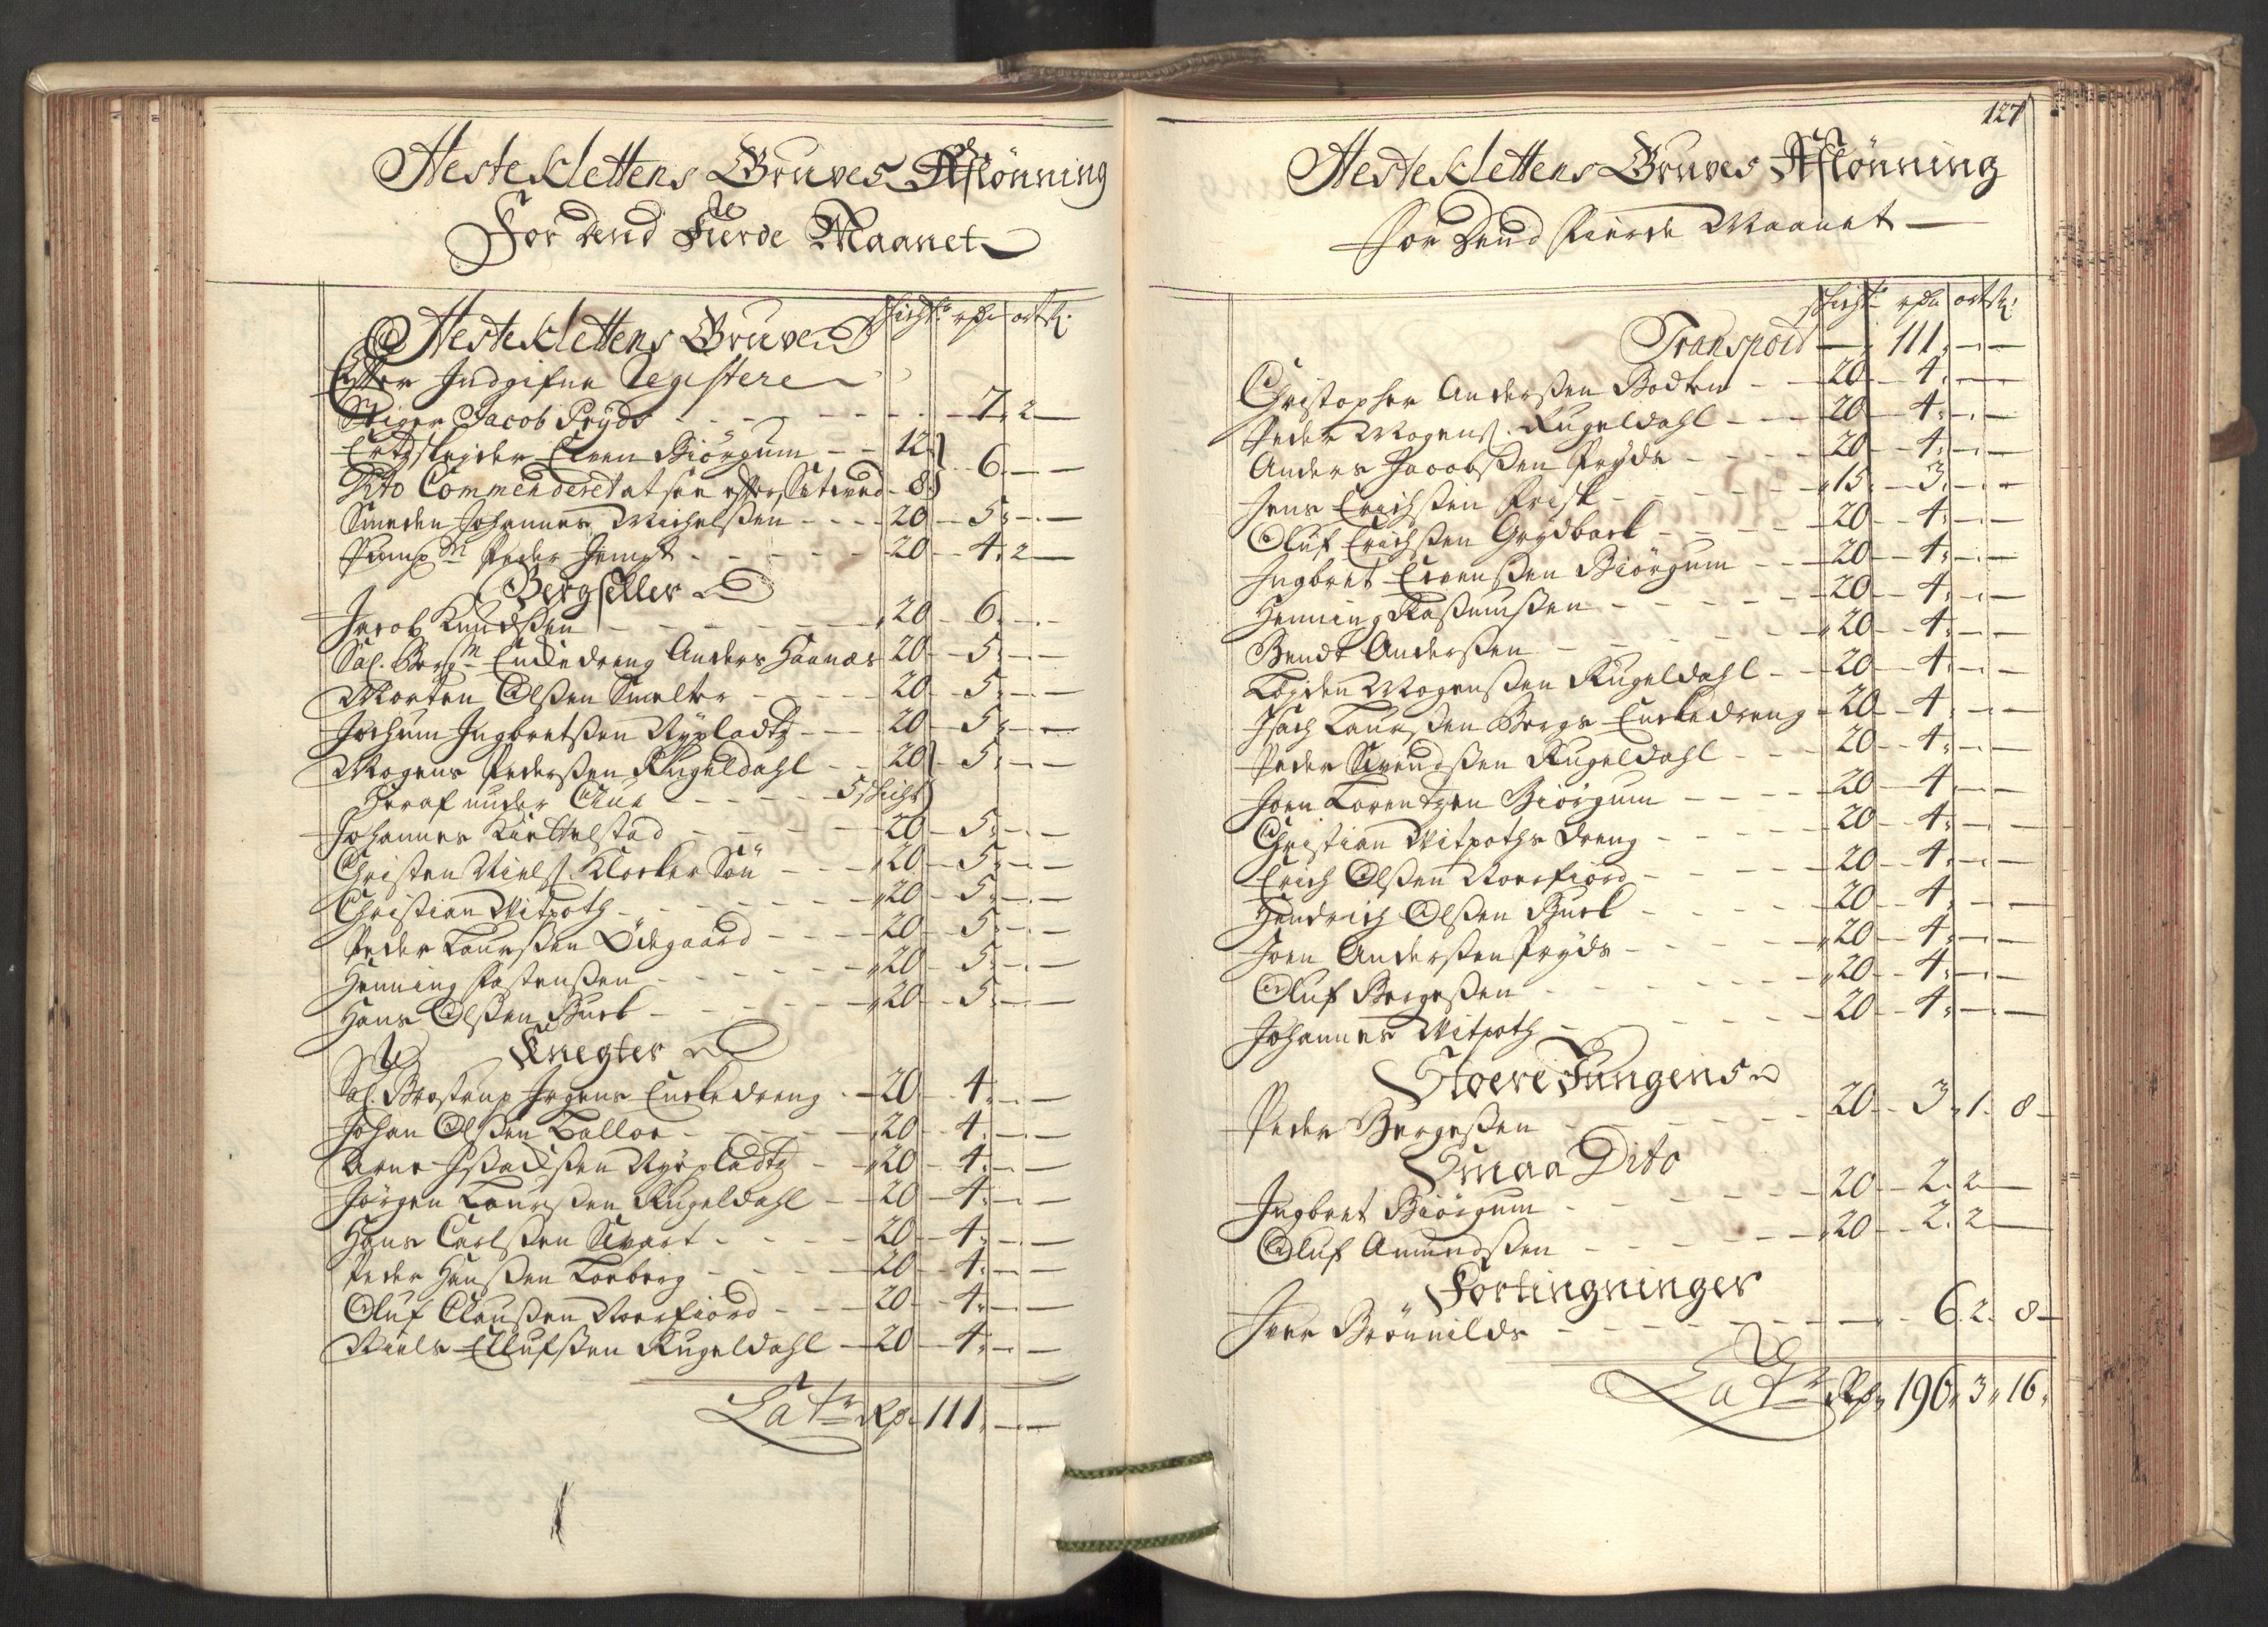 Hesteklettens Gruves Aflønning
For dend Fierde Maanet
Schicht rdr ort sk:
Hesteklettens Gruve
Efter Indgifne Registere
Stiger Jacob Pryds - - - 7. 2 —
Ertzskejder Elven Biörgum - - 12 } 6. — —
Dito Commenderet at see efter - 8 }
Smeden Johannes Michelsen - - - 20 - 5. — —
Pump M Peder Jempt - - - 20 - 4. 2 —
Bergseller
Jacob Knudsen - - - 20 - 6. — —
Sal. Berg M Enckedreng Anders Haanes 20 - 5. — —
Morten Olsen Smelter - - - 20 - 5. — —
Jochum Ingbretsen Nypladtz - - - 20 - 5. — —
Mogens Pedersen Kugeldahl - - 20 } - 5. — —
Heraf under - - - 5 Schicht }
Johannes Kiettelstad - - - 20 - 5. — —
Christen Niels. Klocker Sön - - - 20 - 5. — —
Christian Witpoth - - - 20 - 5. — —
Peder Laursen Ödegaard - - - 20 - 5. — —
Henning Postensen - - - 20 - 5. — —
Hans Olsen Buck - - - 20 - 5. — —
Knegter
Sal. Brostrup Jrgens Enckedreng - 20 - 4. — —
Johan Olsen Balloe - - - 20 - 4. — —
Arne Isacksen Nypladtz - - 20 - 4. — —
Jörgen Laursen Kugeldahl - - 20 - 4. — —
Hans Carlsen Svart - - - 20 - 4. — —
Peder Hansen Loeberg - - - 20 - 4. — —
Oluf Clausen Noerfiord - - - 20 - 4. — —
Niels Ellufsen Kugeldahl - 20 - 4. — —
Lat r Rdr 111. — —
127
Hesteklettens Gruves Aflønning
For Dend Fierde Maanet —
Schicht rdr ort sk:
Transport — 111. — —
Christopher Andersen Bodtem - - 20 - 4. — —
Peder Mogens. Kugeldahl - - - 20 - 4. — —
Anders Jacobsen Pryds - - - 20 - 4. — —
Jens Erichsen Frisk - - - 15 - 3. — —
Oluf Erichsen Grydback - - - 20 - 4. — —
Ingbret Elvensen Biörgum - - 20 - 4. — —
Henning Rasmussen - - - 20 - 4. — —
Bendt Andersen - - - 20 - 4. — —
Mogensen Kugeldahl - - 20 - 4. — —
Isach Laursen Bergs Enckedreng - 20 - 4. — —
Peder Svendsen Kugeldahl - - - 20 - 4. — —
Joen Lorentzen Biörgum - - - 20 - 4. — —
Christian Witpoths dreng - - - 20 - 4. — —
Erich Olsen Noerfiord - - - 20 - 4. — —
Hendrich Olsen Buck - - - 20 - 4. — —
Joen Andersen Pryds - - - 20 - 4. — —
Oluf Borgesen - - - 20 - 4. — —
Johannes Witpoth - - - 20 - 4. — —
Stoere Jungens
Peder Borgesen - - - 20 - 3. 1. 8 —
Smaa Dito
Ingbret Biörgum - - - 20 - 2. 2 —
Oluf Amundsen - - - 20 - 2. 2 —
Fortingninger
Iver Brönnilds - - - 6. 2. 8 —
Lat r Rdr 196. 3. 16.